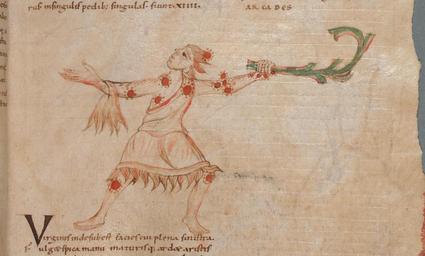 rus insingulis pedib; singulas. fiunt. XIIII.
ARCADES
Virginis indesubest facies cui plena sinistra
spica manu maturisq; aristis